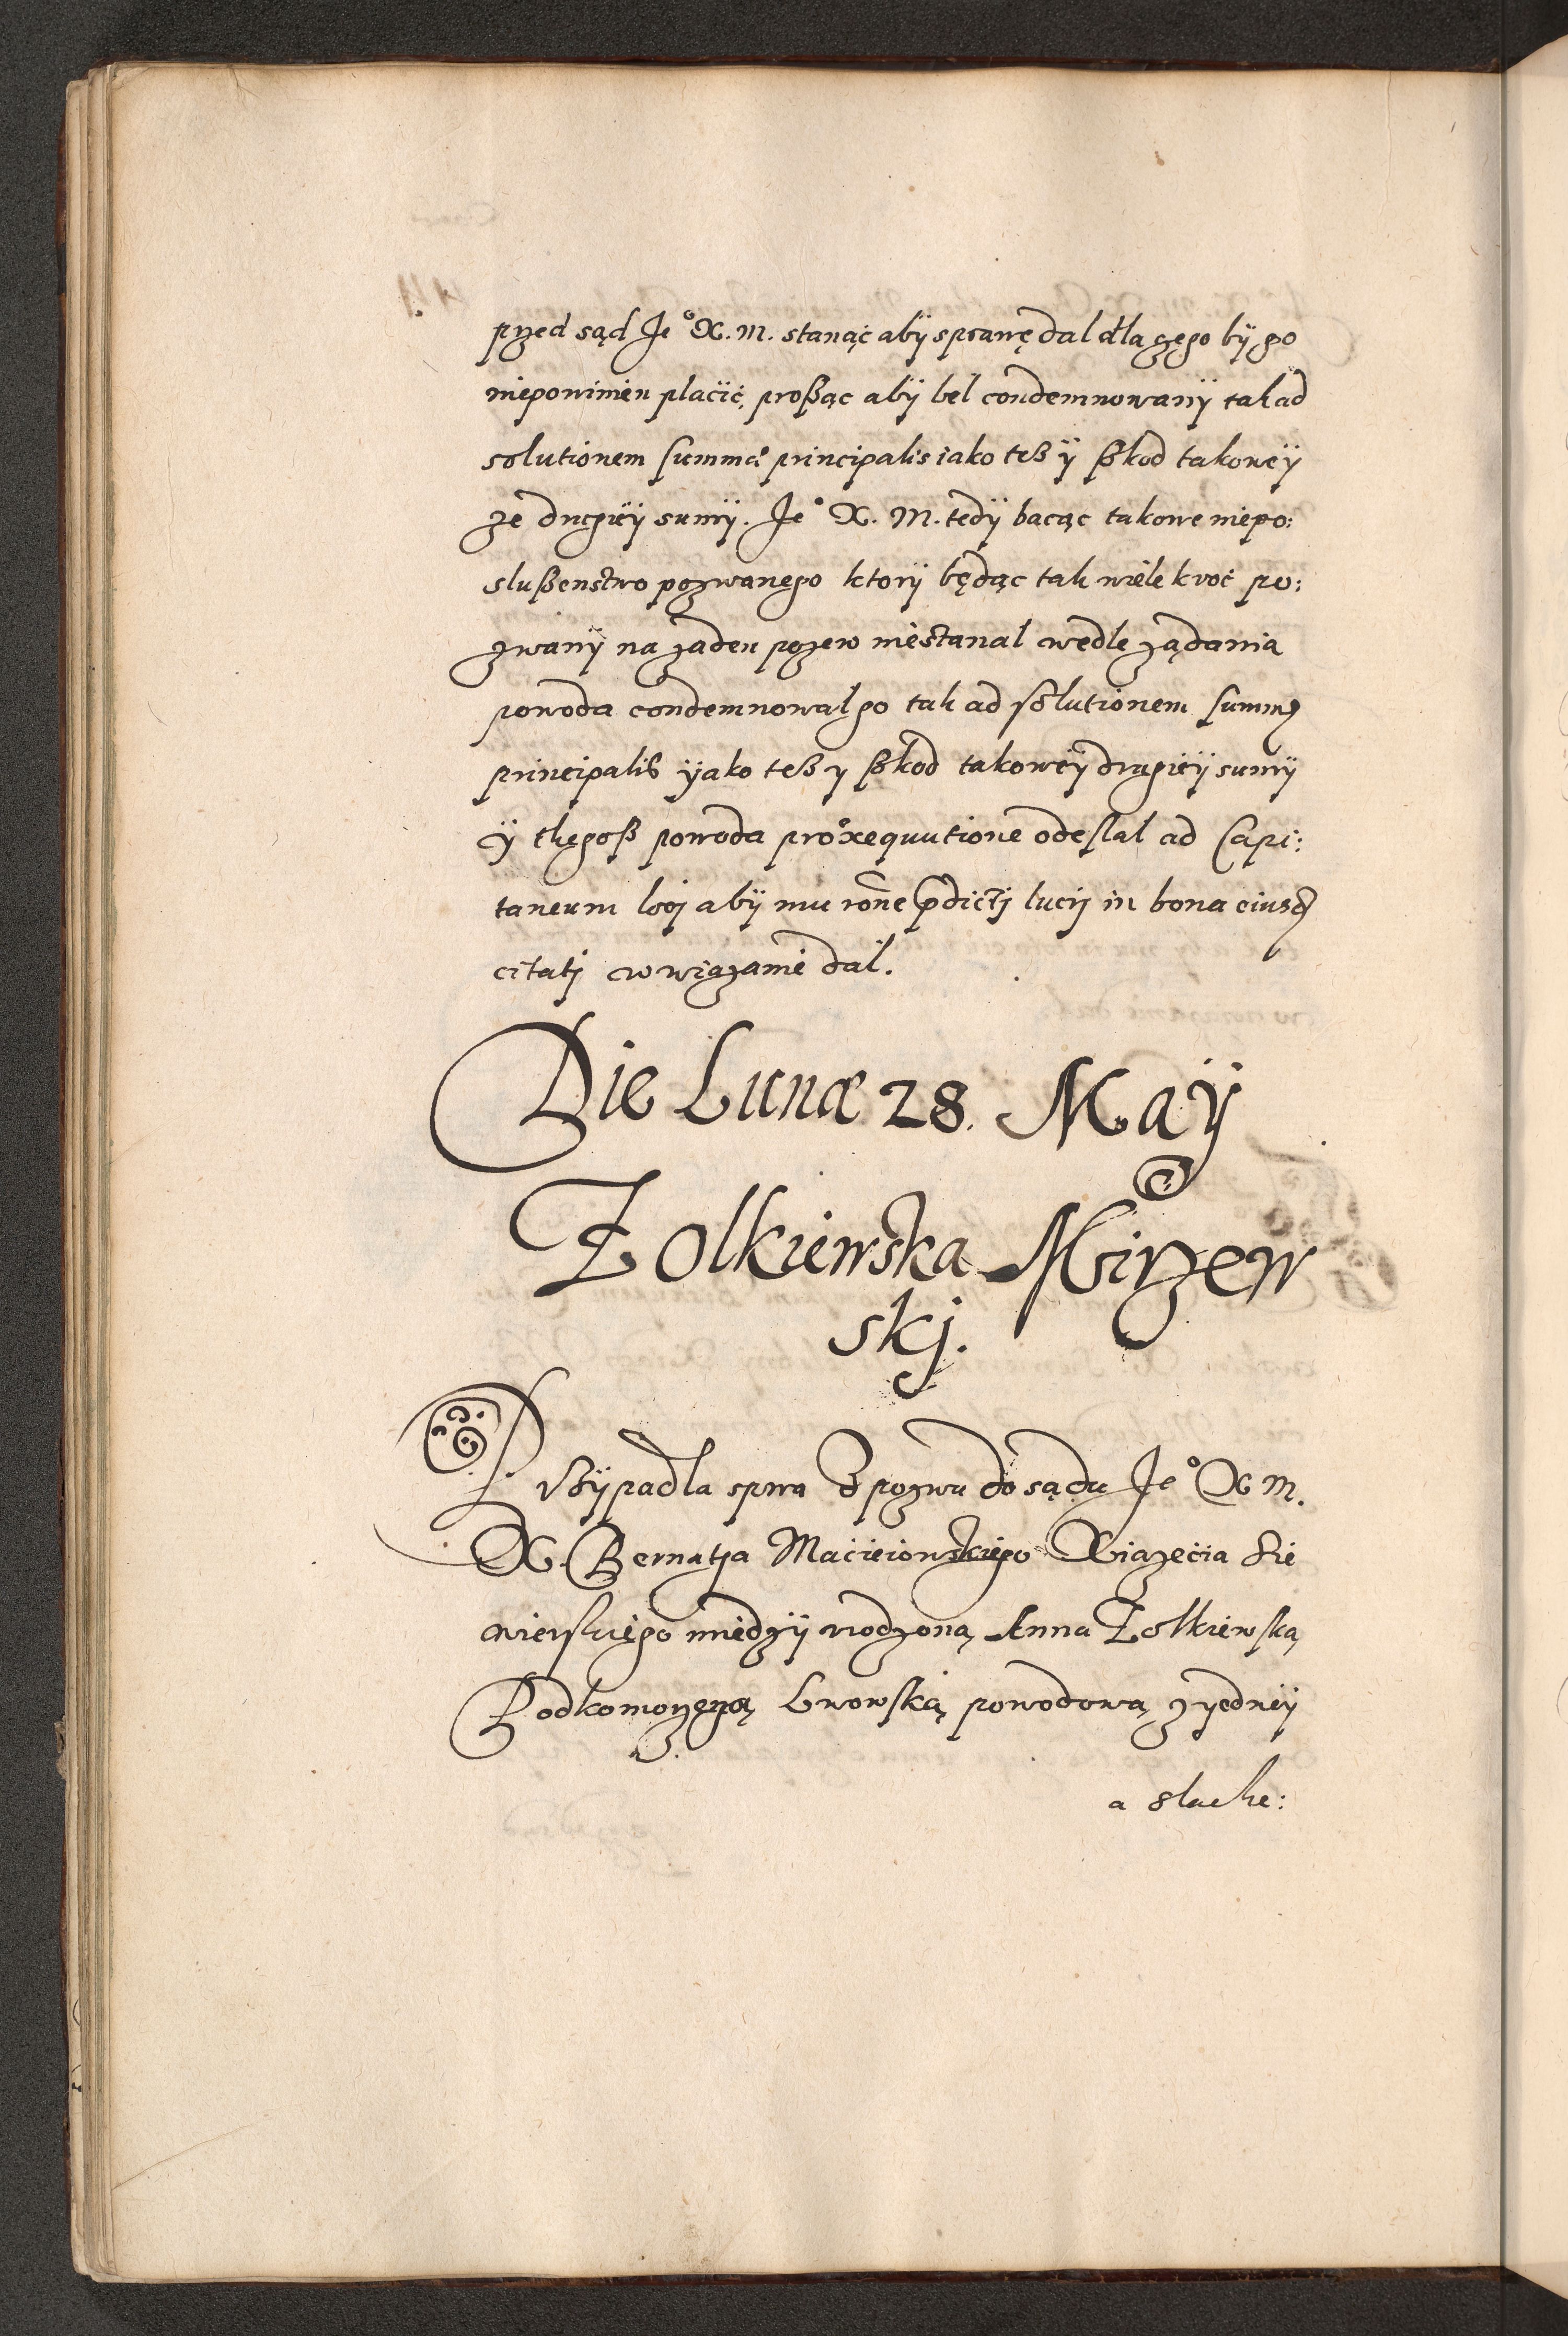 przed sąd Je° X. M. stanąć abÿ sprawę dal dla czego bÿ go
niepowinien placić, proßąc abÿ bel condemnowanÿ tak ad
solutionem summæ principalis iako teß ÿ ßkod takoweÿ
ze drugieÿ sumÿ. Je° X. M. tedÿ bacąc takowe niepo:
slußenstwo pozwanego ktorÿ będąc tak wiele kroć po:
zwanÿ na zaden pozew niestanal wedle ządania
powoda condemnowal go tak ad solutionem summę
principalis ÿako teß y ßkod takoweÿ drugieÿ sumÿ
ÿ thegoß powoda pro exequutione odeslal ad Capi:
taneum loci abÿ mu rōne p̄dictj lucrj in bona eiusđ
citatj wwiązanie dal.
Die Lunæ 28. Maÿ
Zolkiewska Mirzew
skj.
Wÿpadla sprwa Z pozwu do sądu Je° X M.
X. Bernatha Macieiowskiego Xiązęcia Sie
wierskiego międzÿ urodzoną Anna Zolkiewską
Podkomorzÿną Lwowską powodową z yedneÿ
a slache: